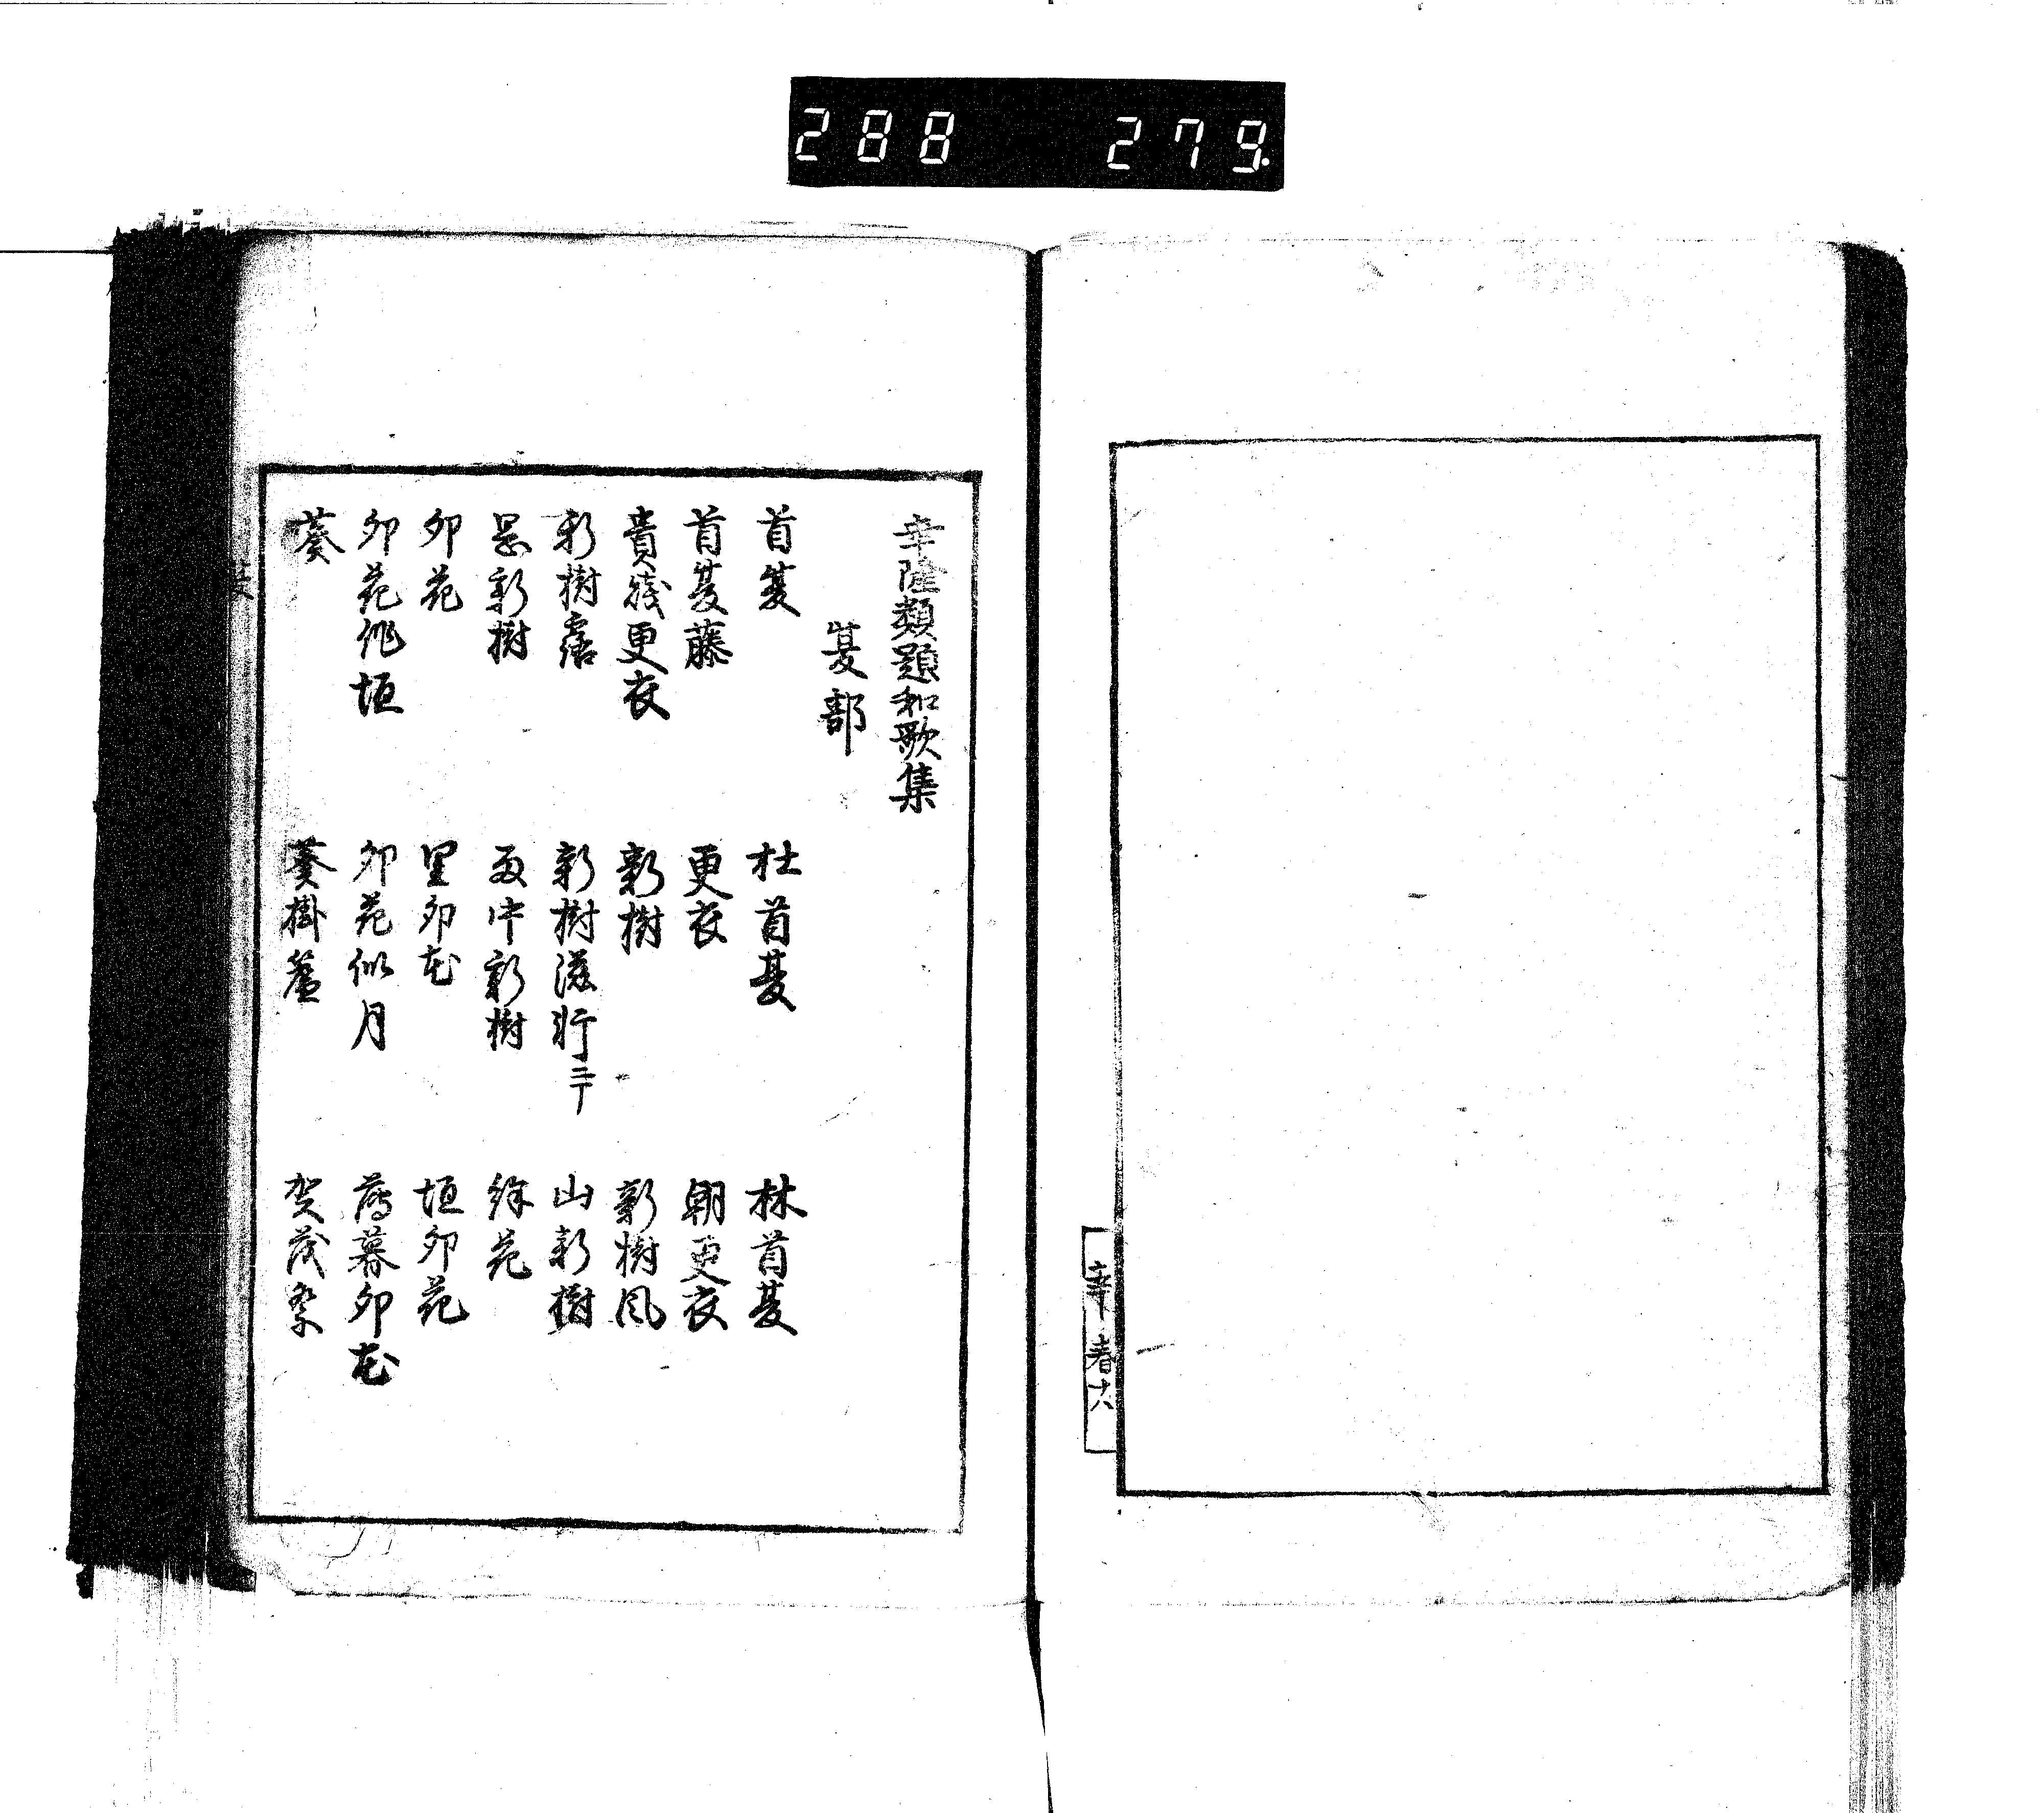 288 279
幸 春
幸隆類題和歌集
夏部
首夏 杜首夏 林首夏
首夏藤 更衣 朝更衣
貴賤更衣 新樹 新樹風
新樹露 新樹滋 山新樹
新樹 雨中新樹 餘花
卯花 里卯花 垣卯花
卯花作垣 卯花似月 薄暮卯花
葵 葵掛簾 賀茂祭